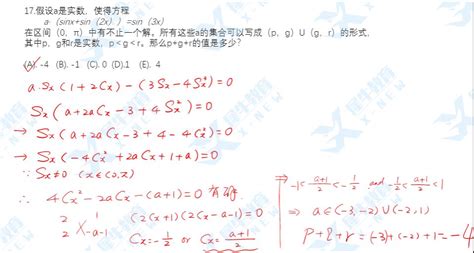 17.假设a是实数，使得方程
a·(sinx+sin（2x））=sin（3x）
在区间（0，π）中有不止一个解，所有这些a的集合可以写成（p，g）U（g，r）的形式，
其中p、g和r是实数，p<g<r。那么p+g+r的值是多少?
(A). -4 (B). -1 (C). 0 (D).1 (E). 4
a·Sx(1+2Cx) - (3Sx-4Sx³)=0
Sx(a+2aCx-3+4Sx²)=0
→ Sx(a+2aCx-3+4-4Cx²)=0
→ Sx(-4Cx²+2aCx+1+a)=0
∵ Sx≠0 (x∈(0,π))
∴ 4Cx²-2aCx-(a+1)=0
2 1 (2Cx+1)(2Cx-a-1)=0
2 -a-1 Cx=-1/2 or Cx=(a+1)/2
⇒ -1<(a+1)/2<-1/2 and -1/2<(a+1)/2<1
⇒ a∈(-3,-2)∪(-2,1)
P+q+r=(-3)+(-2)+1=-4
犀牛教育
XNEW